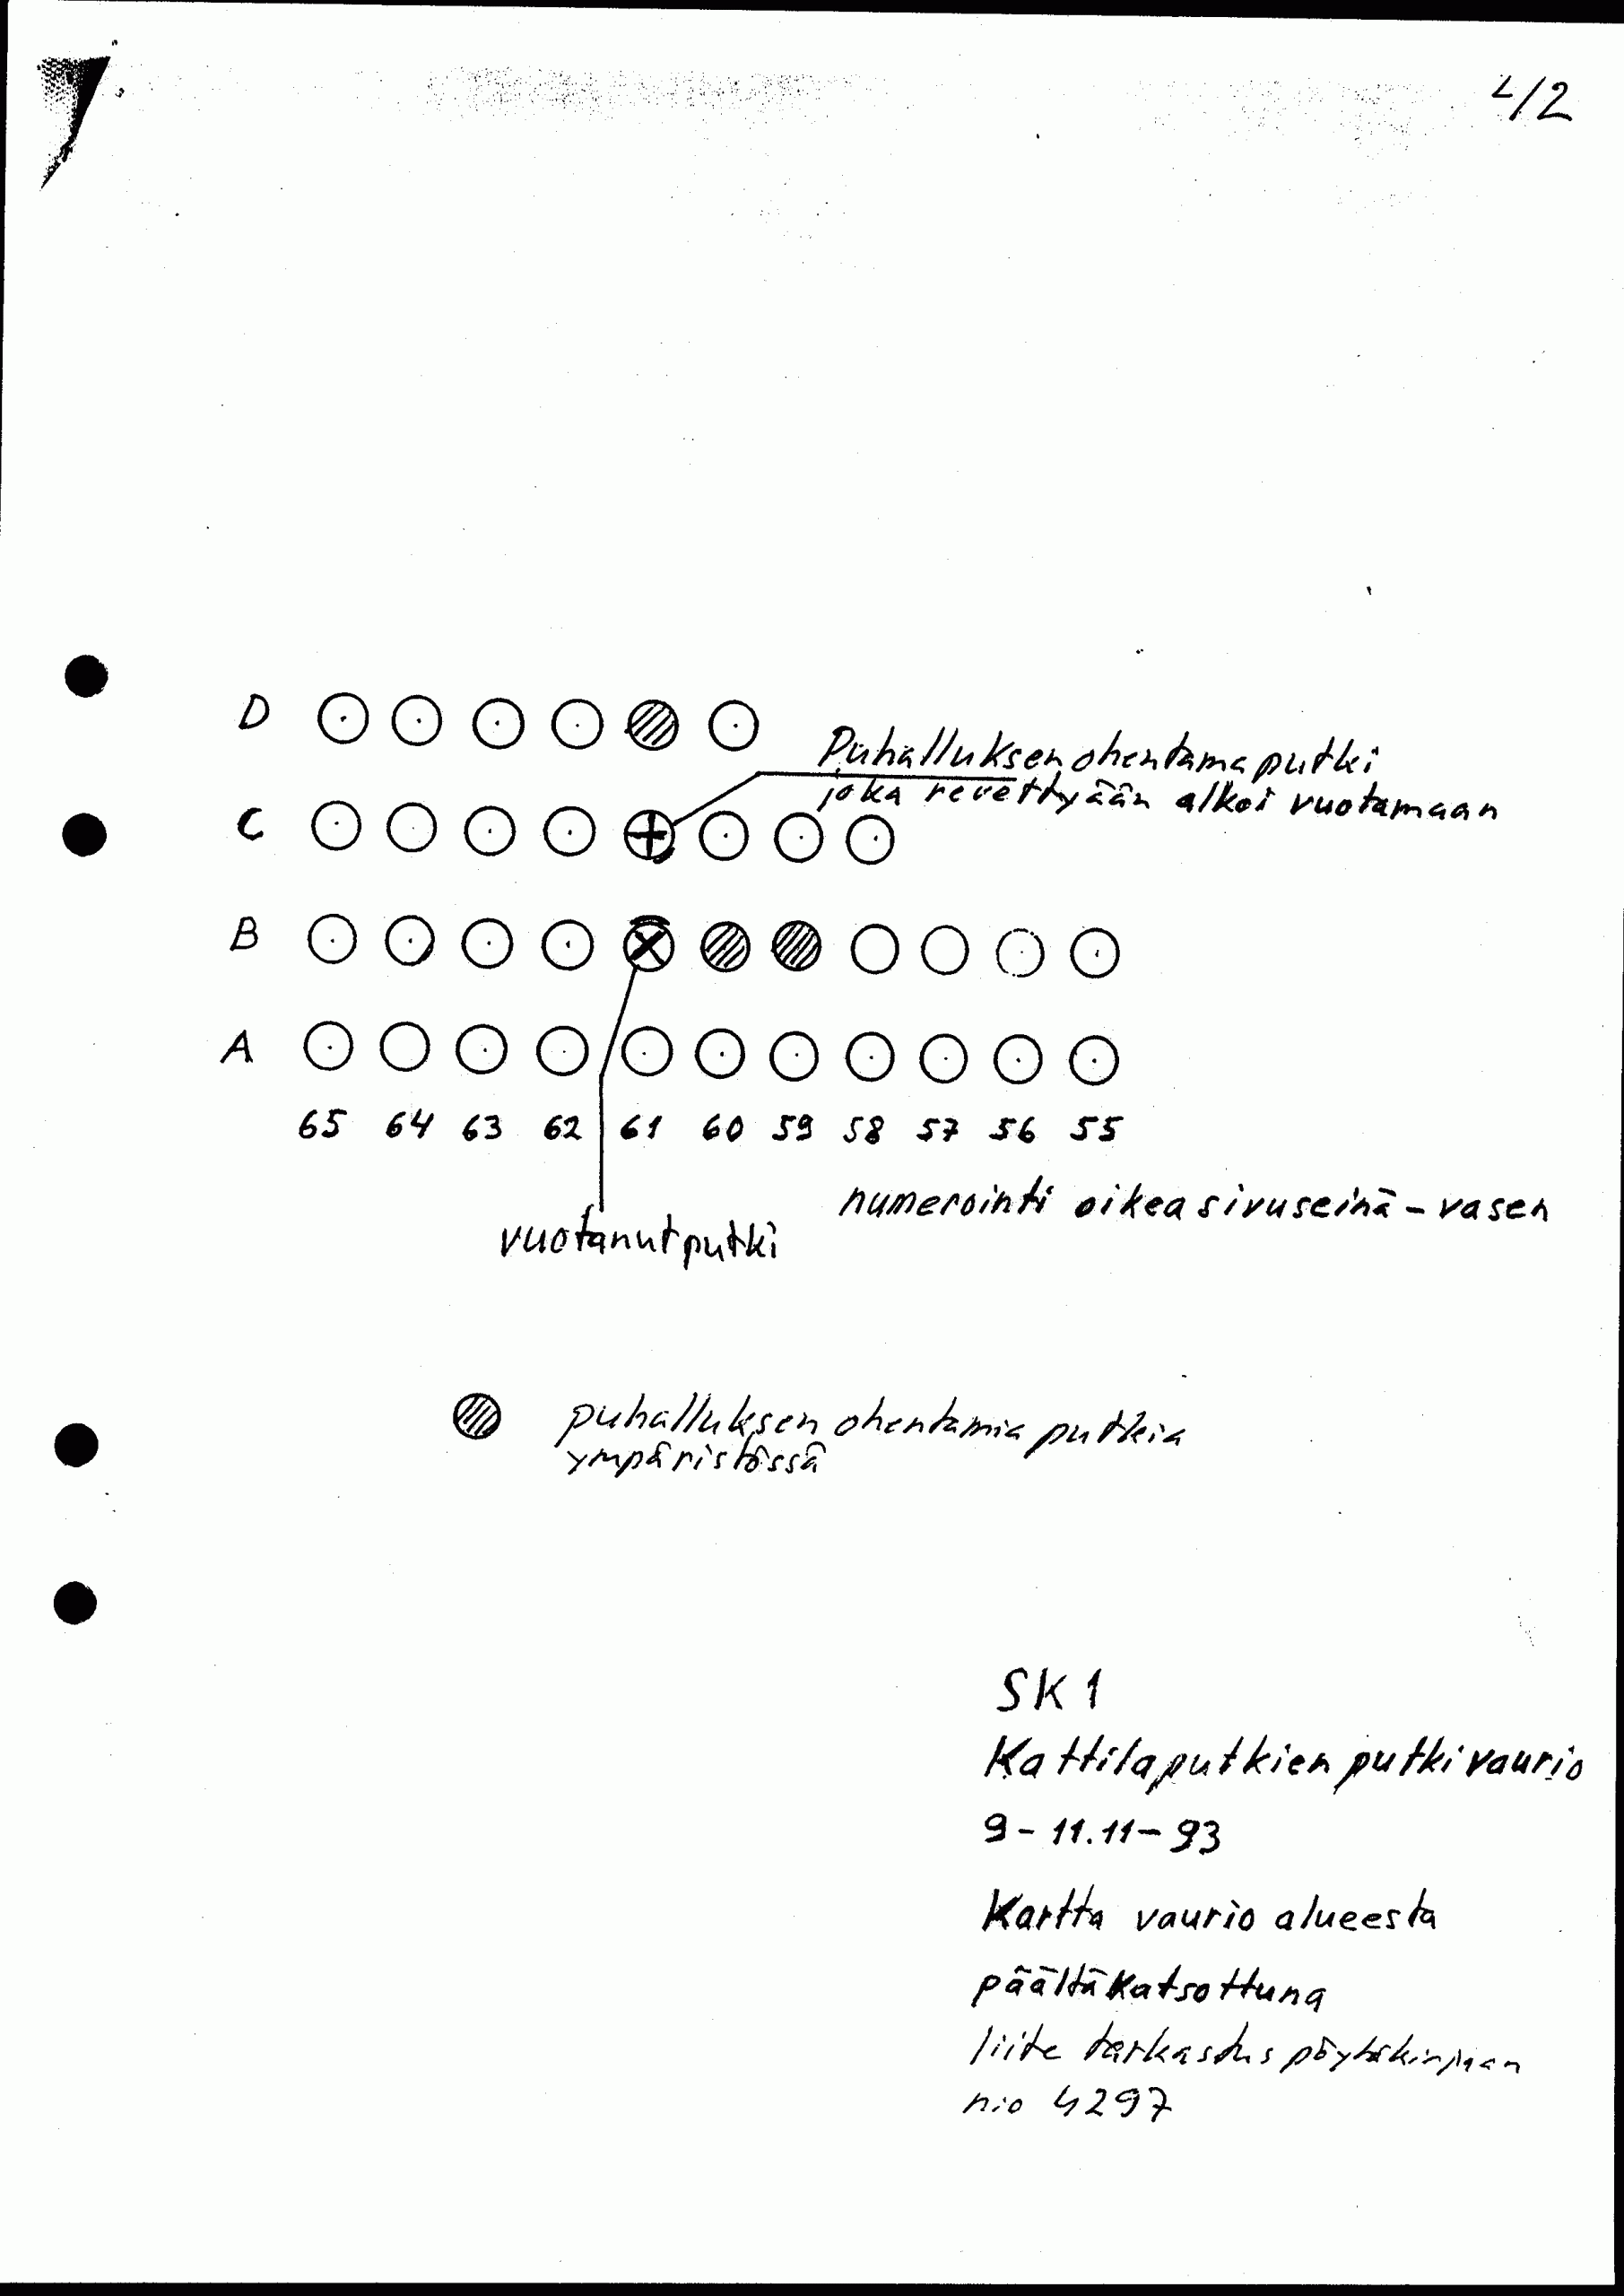 2/2
D
Puhalluksen ohentama putki
joka revettyään alkoi vuotamaan
C
B
A
65 64 63 62 61 60 59 58 57 56 55
numerointi oikea sivuseinä - vasen
vuotanut putki
puhalluksen ohentamia putkia
ympäristössä
SK 1
Kattilaputkien putkivaurio
9 - 11.11 - 93
Kartta vaurio alueesta
päältä katsottuna
liite tarkastus pöytäkirjaan
n:o 4297